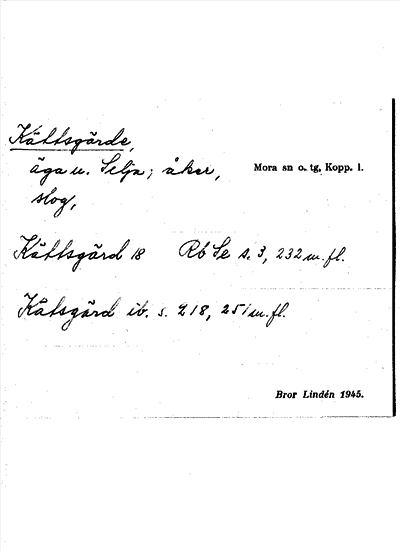 Kättsgärde,
äga u. Selja; åker,
Mora sn o. tg, Kopp. l.
slog,
Kättsgärd 18 Rb Se s. 3, 232 m. fl.
Kätsgärd ib. s. 218, 251 m. fl.
Bror Lindén 1945.